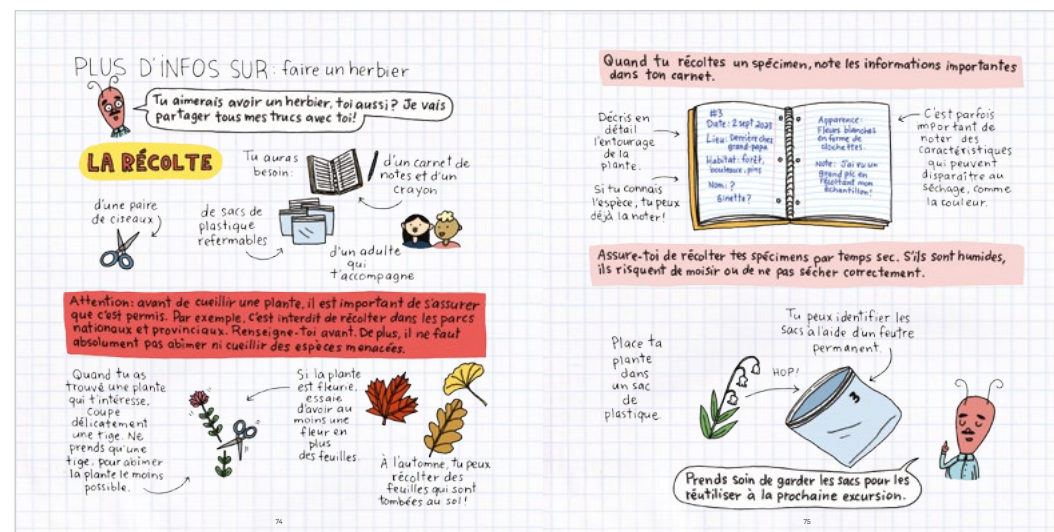 PLUS D'INFOS SUR: faire un herbier
Tu aimerais avoir un herbier, toi aussi? Je vais
partager tous mes trucs avec toi!
LA RÉCOLTE
Tu auras
besoin:
d'un carnet de
notes et d'un
crayon
d'une paire
de ciseaux
de sacs de
plastique
refermables
d'un adulte
qui
t'accompagne
Attention: avant de cueillir une plante, il est important de s'assurer
que c'est permis. Par exemple, c'est interdit de récolter dans les parcs
nationaux et provinciaux. Renseigne-toi avant. De plus, il ne faut
absolument pas abîmer ni cueillir des espèces menacées.
Quand tu as
trouvé une plante
qui t'intéresse,
coupe
délicatement
une tige. Ne
prends qu'une
tige, pour abîmer
la plante le moins
possible.
Si la plante
est fleurie,
essaie
d'avoir au
moins une
fleur en
plus
des feuilles.
À l'automne, tu peux
récolter des
feuilles qui sont
tombées au sol!
74
Quand tu récoltes un spécimen, note les informations importantes
dans ton carnet.
Décris en
détail
l'entourage
de la
plante.
Si tu connais
l'espèce, tu peux
déjà la noter!
#3
Date: 2 sept 2023
Lieu: Derrière chez
grand-papa
Habitat: forêt,
bouleaux, pins
Nom: ?
Ginette?
Apparence:
Fleurs blanches
en forme de
clochettes.
Note: J'ai vu un
grand pic en
récoltant mon
échantillon!
C'est parfois
important de
noter des
caractéristiques
qui peuvent
disparaître au
séchage, comme
la couleur.
Assure-toi de récolter tes spécimens par temps sec. S'ils sont humides,
ils risquent de moisir ou de ne pas sécher correctement.
Place ta
plante
dans
un sac
de
plastique
HOP!
Tu peux identifier les
sacs à l'aide d'un feutre
permanent.
3
Prends soin de garder les sacs pour les
réutiliser à la prochaine excursion.
75